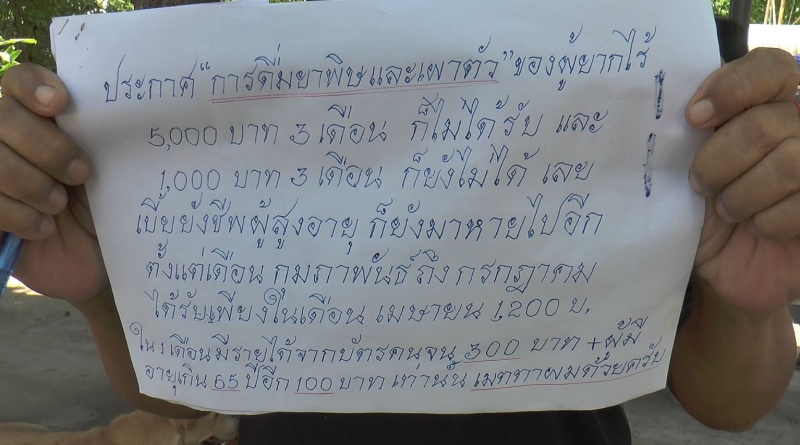 ประกาศ “การดื่มยาพิษและเผาตัว” ของผู้ยากไร้
5,000 บาท 3 เดือน ก็ไม่ได้รับ และ
1,000 บาท 3 เดือน ก็ยังไม่ได้ เลย
เบี้ยยังชีพผู้สูงอายุ ก็ยังมาหายไปอีก
ตั้งแต่เดือน กุมภาพันธ์ ถึง กรกฎาคม
ได้รับเพียงในเดือน เมษายน 1,200 บ.
ใน 1 เดือนมีรายได้จากบัตรคนจน 300 บาท + ผู้มี
อายุเกิน 65 ปีอีก 100 บาท เท่านั้น เมตตาผมด้วยครับ